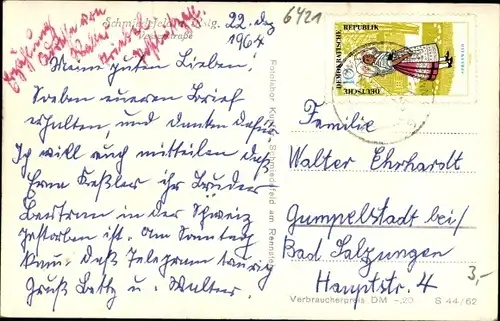 Schmiedefeld
22. Dez
1964
6421
Meine guten Lieben!
Soeben eueren Brief
erhalten, und danken dafür.
Ich will auch mitteilen daß
Erna Keßler ihr Bruder
in der Schweiz
gestorben ist. Am Sonntag
kam das Telegram traurig
Gruß Betty u. Walter.
Fotolabor Kurt Schmiedefeld am Rennsteig
DEUTSCHE DEMOKRATISCHE
REPUBLIK
10
Familie
Walter Ehrhardt
Gumpelstadt bei/
Bad Salzungen
Hauptstr. 4
3,-
Verbraucherpreis DM -,20 S 44/62